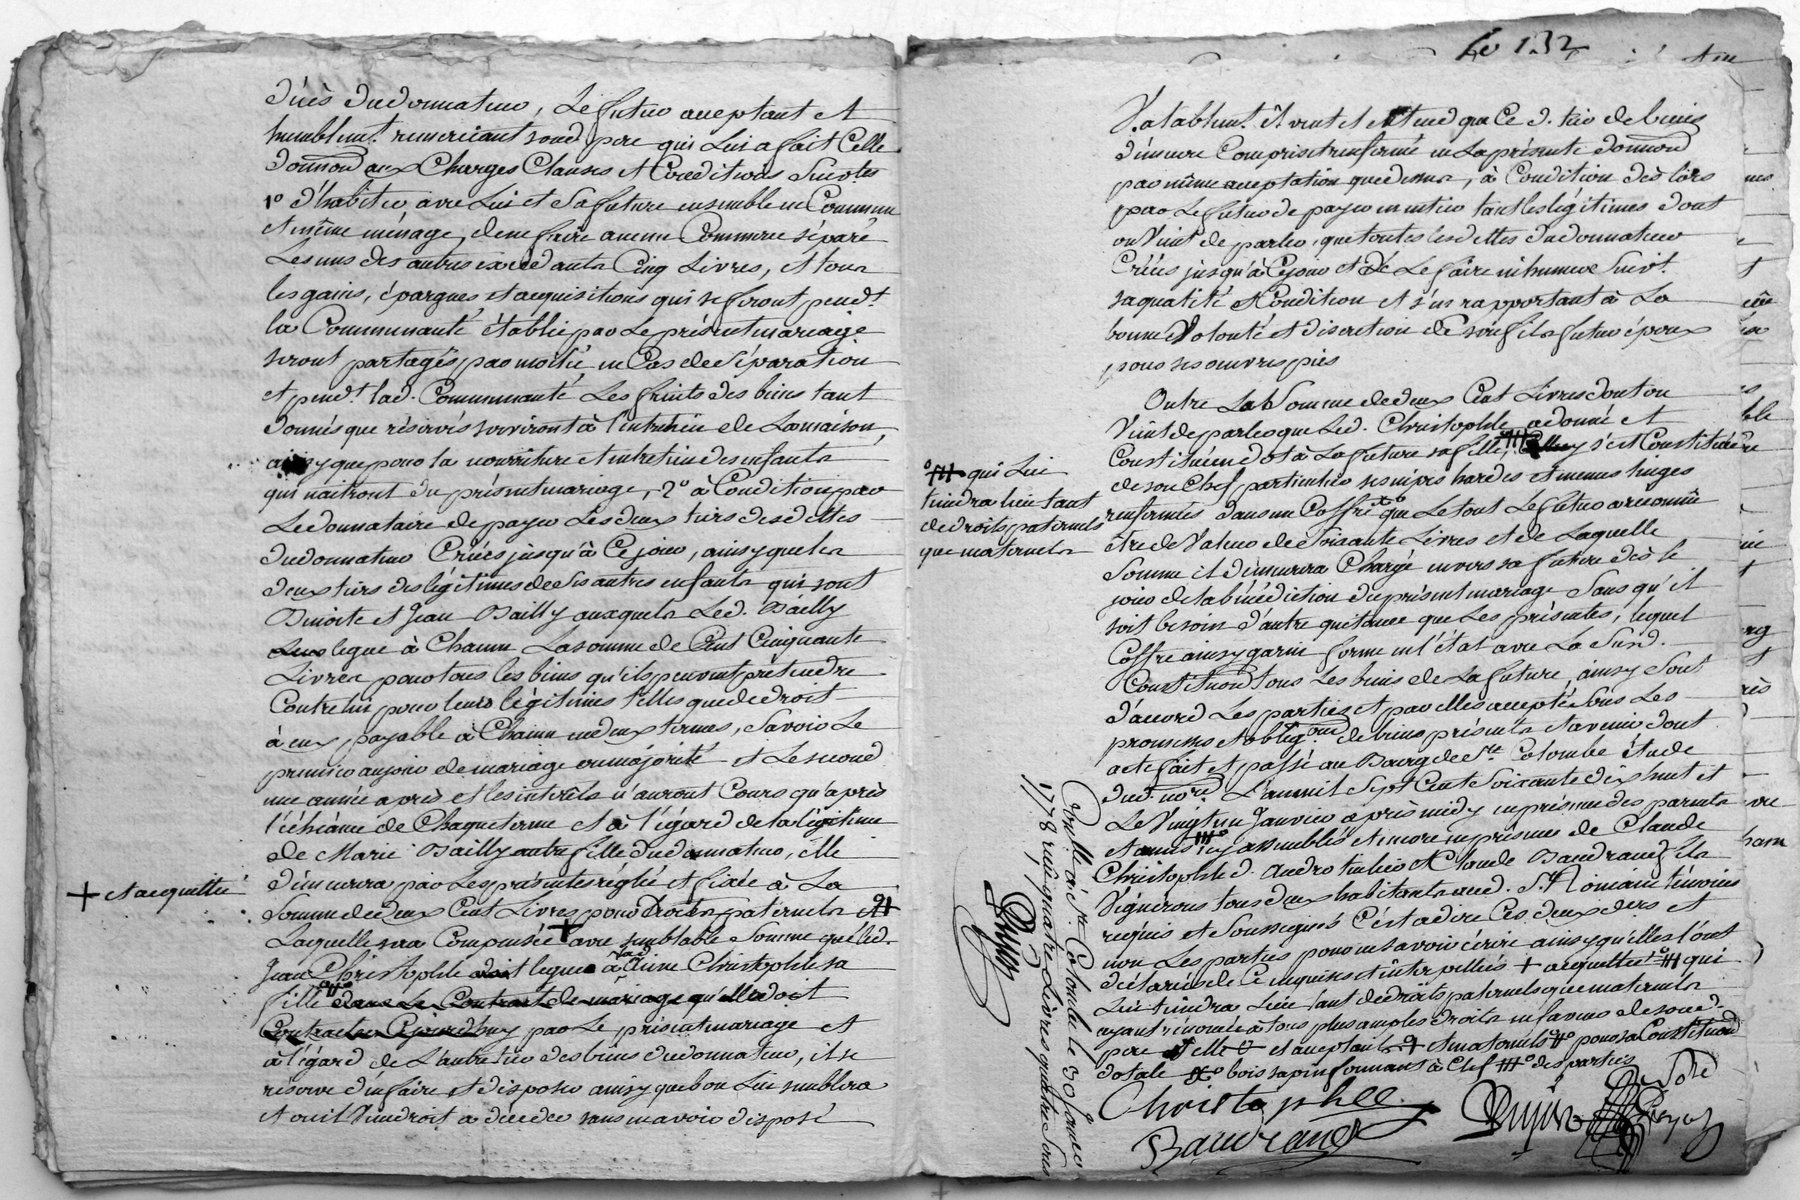 décès du donnateur, Le futur acceptant et
humblemt. remerciant sond. pere qui Lui a fait Celle
donnaōn aux Charges Clauses et Conditions Suivtes
1º d'habiter avec Lui et Sa future ensemble en Commun
et même ménage, de ne faire aucun Commerce séparé
Les uns des autres excedants Cinq Livres, et tous
les gains, épargnes et acquisitions qui se feront pendt.
la Communauté établie par Le présent mariage
seront partagés par moitié en Cas de Séparation
et pendt. lad. Communauté Les fruits des biens tant
donnés que réservés serviront à l'entretien de La maison,
ainsy que pour la nourriture et entretien des enfants
qui naitront du présent mariage, 2º à Condition par
Le donnataire de payer Les deux tiers des dettes
du donnateur Créées jusqu'à Ce jour, ainsy que les
deux tiers des légitimes de Ses autres enfants qui sont
Benoite et Jean Bailly auxquels Led. Bailly
legue à Chacun La somme de Cent Cinquante
Livres pour tous les biens qu'ils peuvent prétendre
Contre lui pour leurs légitimes telles que de droit
à eux payable à Chacun en deux termes, Savoir Le
premier au jour de mariage ou majorité et Le second
une année après et les interêts n'auront Cours qu'après
l'échéance de Chaque terme et à l'égard de la légitime
de Marie Bailly autre fille du donnateur, elle
demeurera par Les présentes réglée et fixée à La
+ et acquittée
Somme de deux Cent Livres pour Droits paternels et
Laquelle sera Compensée + avec semblable Somme que led.
Jean Christophle legue à lad Aimé Christophle sa
fille dans Le Contract de mariage qu'elle doit
Contracter Cejourdhuy par Le présent mariage et
à l'égard de L'autre tier des biens du donnateur, il se
reserve d'en faire et disposer ainsy que bon Lui semblera
et ou il Viendroit a deceder sans en avoir disposé
fo 132
Valablemt. il veut et entend que Ce d. tier de biens
demeure Compris et renfermé en La présente donnaōn
par même acceptation que dessus, à Condition dès lors
par Le futur de payer en entier tant les légitimes dont
on Vient de parler, que toutes les dettes du donnateur
Créées jusqu'à Ce jour et de Le faire inhumer Suivt.
sa qualité et Condition et s'en rapportant à La
bonne Volonté et discretion de son fils futur époux
pour ses œuvres pies
Outre La Somme de deux Cent Livres dont on
Vient de parler que Led. Christophle a donné et
Constitué en dot à La future sa fille, s'est Constituée
º qui Lui
tiendra lieu tant
de droits paternels
que maternels
de son Chef particulier ses nipes hardes et menus linges
renfermés dans un Coffre que Le tout Le futur a reconnu
être de Valeur de Soixante Livres et de Laquelle
Somme il demeurera Chargé envers sa future dès le
jour de la bénédiction du présent mariage Sans qu'il
soit besoin d'autre quitance que Les présentes, lequel
Coffre ainsy garni forme en l'état avec La Susd.
Constituaōn tous Les biens de La future, ainsy Sont
d'accord Les parties et par elles accepté Sous Les
promesses et obligaons de biens présents et avenir dont
acte fait et passé au Bourg de Ste Colombe étude
dud. nore L'an mil Sept Cent Soixante dix huit et
Le Vingt un Janvier après midy en présence des parents
et amis icy assemblés et encore en présence de Claude
Christophle d. André tuilier et Claude Baudrand fils
Vignerons tous deux habitants aud. St Romain témoins
requis et Soussignés C'est a dire Ces deux ders et
non Les parties pour ne savoir écrire ainsy qu'elles l'ont
déclaré de Ce enquises et interpellées + acquittée qui
Lui tiendra Lieu tant de droits paternels que maternels
ayant renoncé à tous plus amples droits en faveur de sond.
pere et elle et acceptants et maternels pour sa Constituaōn
dotale bois sapin formant à Clef des parties
Christophle
Baudrand
Dujon
Conllé à Ste Colombe le 30 Janvier
1778 reçu quatre Livres quatre Sous
Dujon